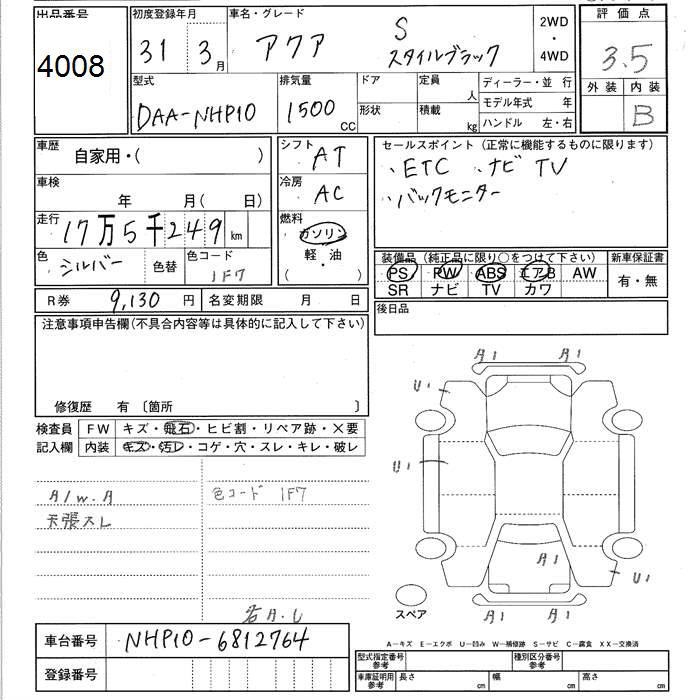 出品番号 初度登録年月 車名・グレード 2WD・4WD 評価点
4008 31 3月 アクア S スタイルブラック 3.5
型式 排気量 ドア 定員 人 ディーラー・並行 外装 内装
DAA-NHP10 1500 CC 形状 積載 kg モデル年式 年 B
ハンドル 左・右
車歴 自家用・( ) シフト AT セールスポイント(正常に機能するものに限ります)
車検 年 月( 日) 冷房 AC ・ETC ・ナビ TV
・バックモニター
走行 17万5千249km 燃料 ガソリン 軽・油 ( )
色 シルバー 色替 色コード 1F7
装備品(純正品に限り○をつけて下さい) 新車保証書
PS PW ABS エアB AW 有・無
SR ナビ TV カワ
R券 9,130円 名変期限 月 日 後日品
注意事項申告欄(不具合内容等は具体的に記入して下さい)
修復歴 有〔箇所 〕
検査員 FW キズ・飛石・ヒビ割・リペア跡・×要
記入欄 内装 キズ・汚レ・コゲ・穴・スレ・キレ・破レ
A/W.A 色コード 1F7
天張スレ
A1 A1
U1
U1
A1
U1
A1 A1
スペア
A-キズ E-エクボ U-凹み W-補修跡 S-サビ C-腐食 XX-交換済
車台番号 NHP10-6812764
登録番号
型式指定番号 参考 種別区分番号 参考
車庫証明用 参考 長さ cm 幅 cm 高さ cm